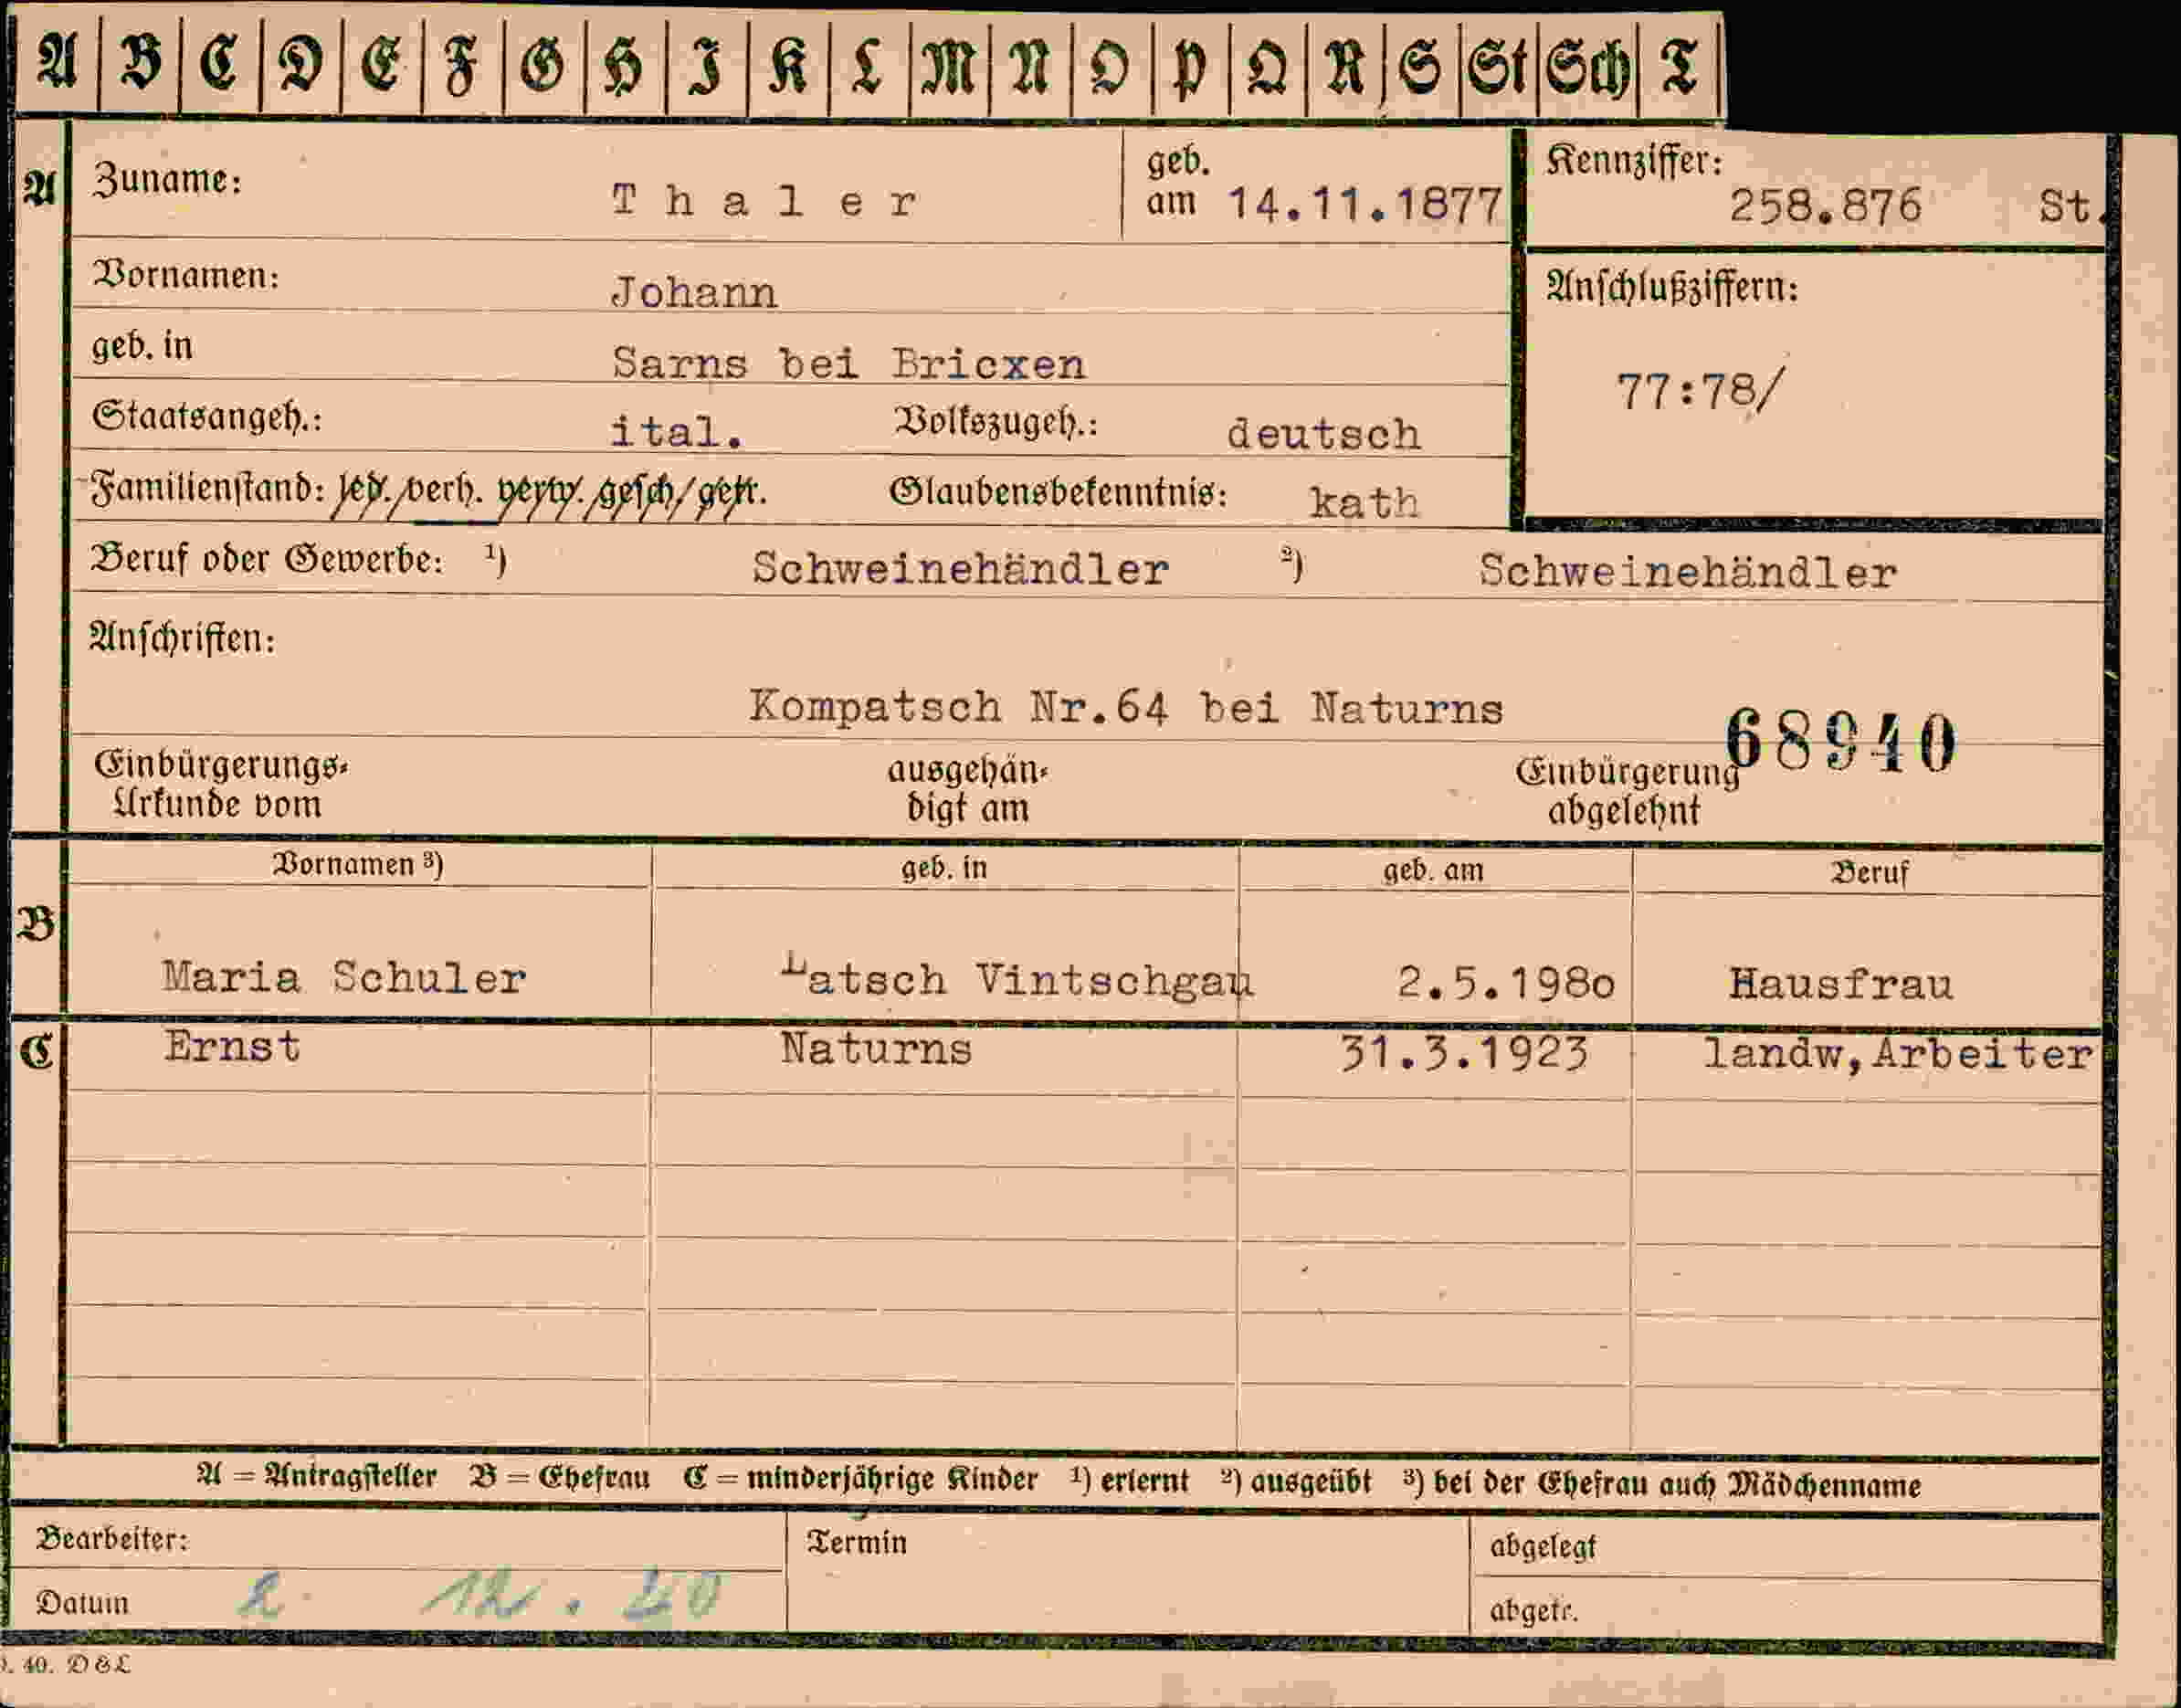 A B C D E F G H I K L M N O P Q R S St Sch T
A Zuname: Thaler geb. am 14.11.1877 Kennziffer: 258.876 St.
Vornamen: Johann Anschlußziffern:
geb. in Sarns bei Bricxen 77:78/
Staatsangeh.: ital. Volkszugeh.: deutsch
Familienstand: led. verh. verw. gesch. getr. Glaubensbekenntnis: kath
Beruf oder Gewerbe: 1) Schweinehändler 2) Schweinehändler
Anschriften:
Kompatsch Nr.64 bei Naturns
68940
Einbürgerungs- ausgehän- Einbürgerung
Urkunde vom digt am abgelehnt
Vornamen 3) geb. in geb. am Beruf
B
Maria Schuler Latsch Vintschgau 2.5.198o Hausfrau
C Ernst Naturns 31.3.1923 landw,Arbeiter
A = Antragsteller B = Ehefrau C = minderjährige Kinder 1) erlernt 2) ausgeübt 3) bei der Ehefrau auch Mädchenname
Bearbeiter: Termin abgelegt
Datum 2. 12. 40 abgetr.
40. D&L